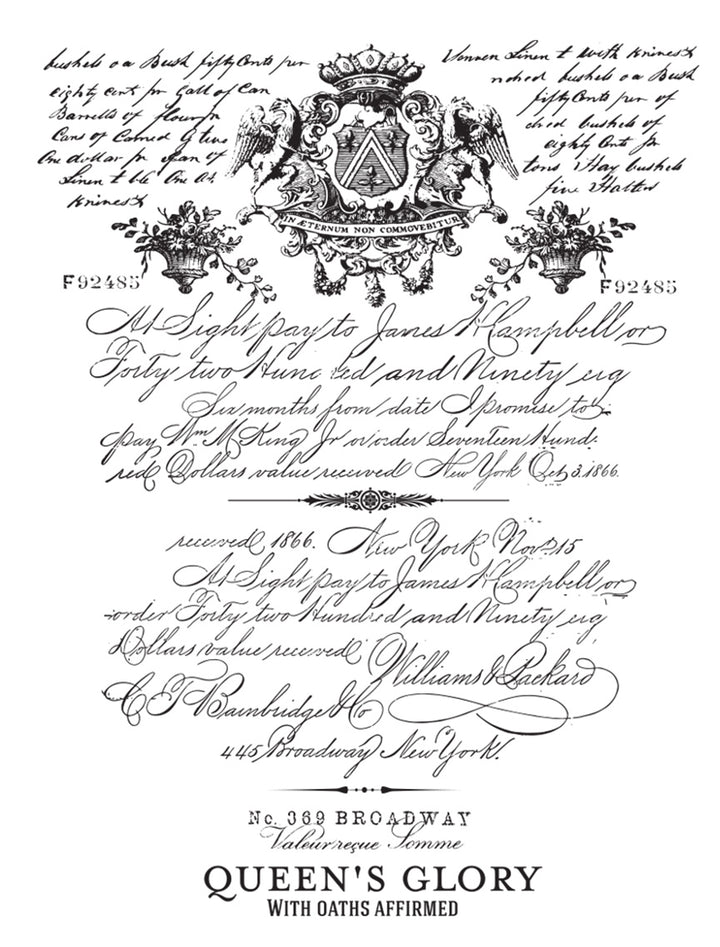 bushels o a Bush fifty Cents per
eighty cent for Gall of Can
Barrells of flour for
Cans of Corned
One dollar for of
Linen t One
Kniness
Linen t with Kniness
bushels o a Bush
fifty Cents per of
bushels of
eighty Cents for
tons Hay bushels
five Hatters
IN ÆTERNUM NON COMMOVEBITUR
F92485
F92485
At Sight pay to James W Campbell or
Forty two Hundred and Ninety eig
Six months from date I promise to
pay Wm M King Jr or order Seventeen Hund-
red Dollars value received New York Oct 3. 1866.
received 1866. New York Nov 15
At Sight pay to James W Campbell or
order Forty two Hundred and Ninety eig
Dollars value received
Williams & Packard
C T Bainbridge & Co
445 Broadway New York.
No. 369 BROADWAY
Valeur reçue Somme
QUEEN'S GLORY
WITH OATHS AFFIRMED